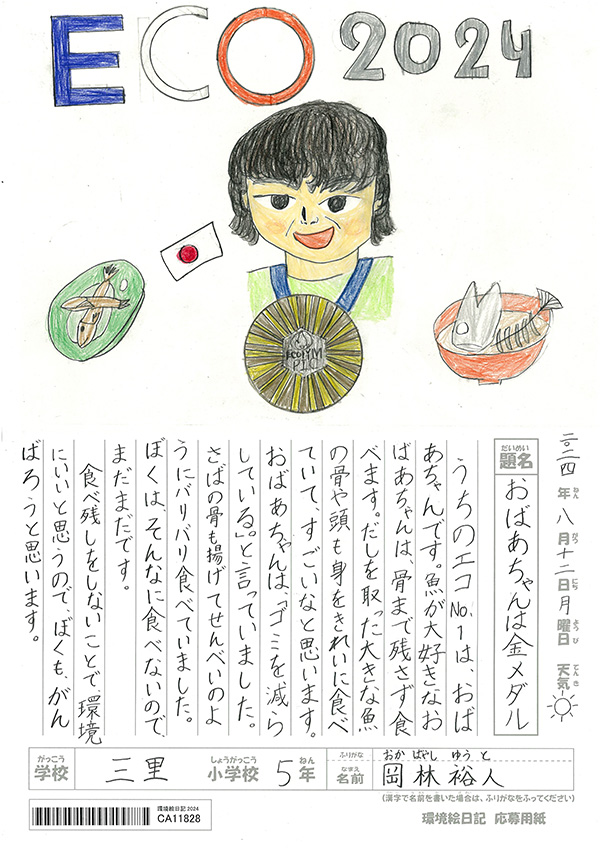 ECO 2024
ECOLYM
PIC
二〇二四年八月十二日月曜日 天気
ねん がつ にち ようび てんき
だいめい
題名 おばあちゃんは金メダル
うちのエコNo.1は、おば
あちゃんです。魚が大好きなお
ばあちゃんは、骨まで残さず食
べます。だしを取った大きな魚
の骨や頭も身をきれいに食べ
ていて、すごいなと思います。
おばあちゃんは、「ゴミを減ら
している」。と言っていました。
さばの骨も揚げてせんべいのよ
うにバリバリ食べていました。
ぼくは、そんなに食べないので、
まだまだです。
食べ残しをしないことで、環境
にいいと思うので、ぼくも、がん
ばろうと思います。
がっこう しょうがっこう ねん ふりがな おかばやし ゆうと
学校 三里 小学校 5年 なまえ 名前 岡林裕人
(漢字で名前を書いた場合は、ふりがなをふってください)
環境絵日記 2024
CA11828
環境絵日記 応募用紙